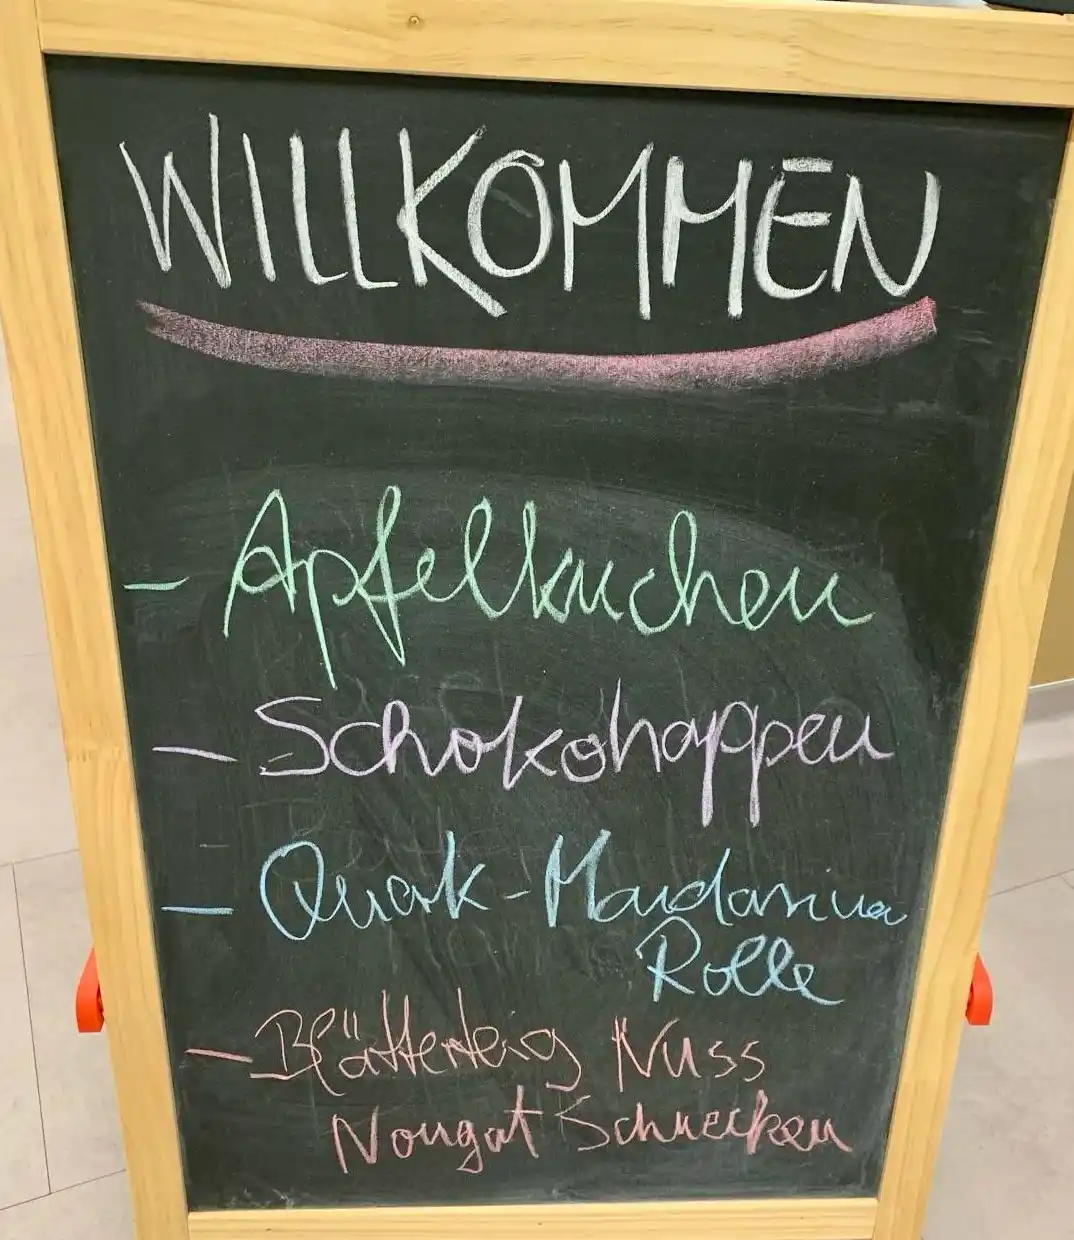 WILLKOMMEN
- Apfelkuchen
- Schokohappen
- Quark-Mandarinen
Rolle
- Blätterteig Nuss
Nougat Schnecken